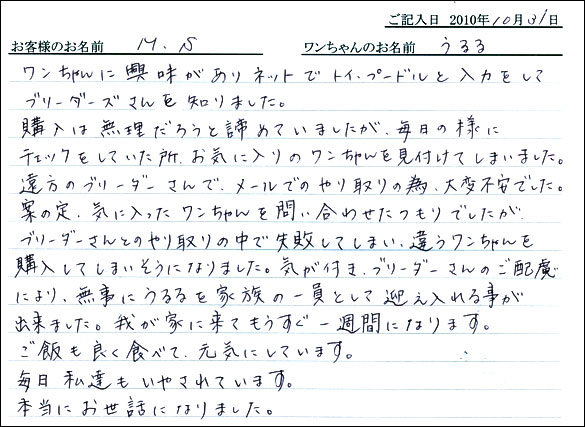 ご記入日 2010年10月31日
お客様のお名前 M.S ワンちゃんのお名前 うるる
ワンちゃんに興味がありネットでトイ・プードルと入力をして
ブリーダーズさんを知りました。
購入は無理だろうと諦めていましたが、毎日の様に
チェックをしていた所、お気に入りのワンちゃんを見付けてしまいました。
遠方のブリーダーさんで、メールでのやり取りの為、大変不安でした。
案の定、気に入ったワンちゃんを問い合わせたつもりでしたが、
ブリーダーさんとのやり取りの中で失敗してしまい、違うワンちゃんを
購入してしまいそうになりました。気が付き、ブリーダーさんのご配慮
により、無事にうるるを家族の一員として迎え入れる事が
出来ました。我が家に来てもうすぐ一週間になります。
ご飯も良く食べて、元気にしています。
毎日私達もいやされています。
本当にお世話になりました。